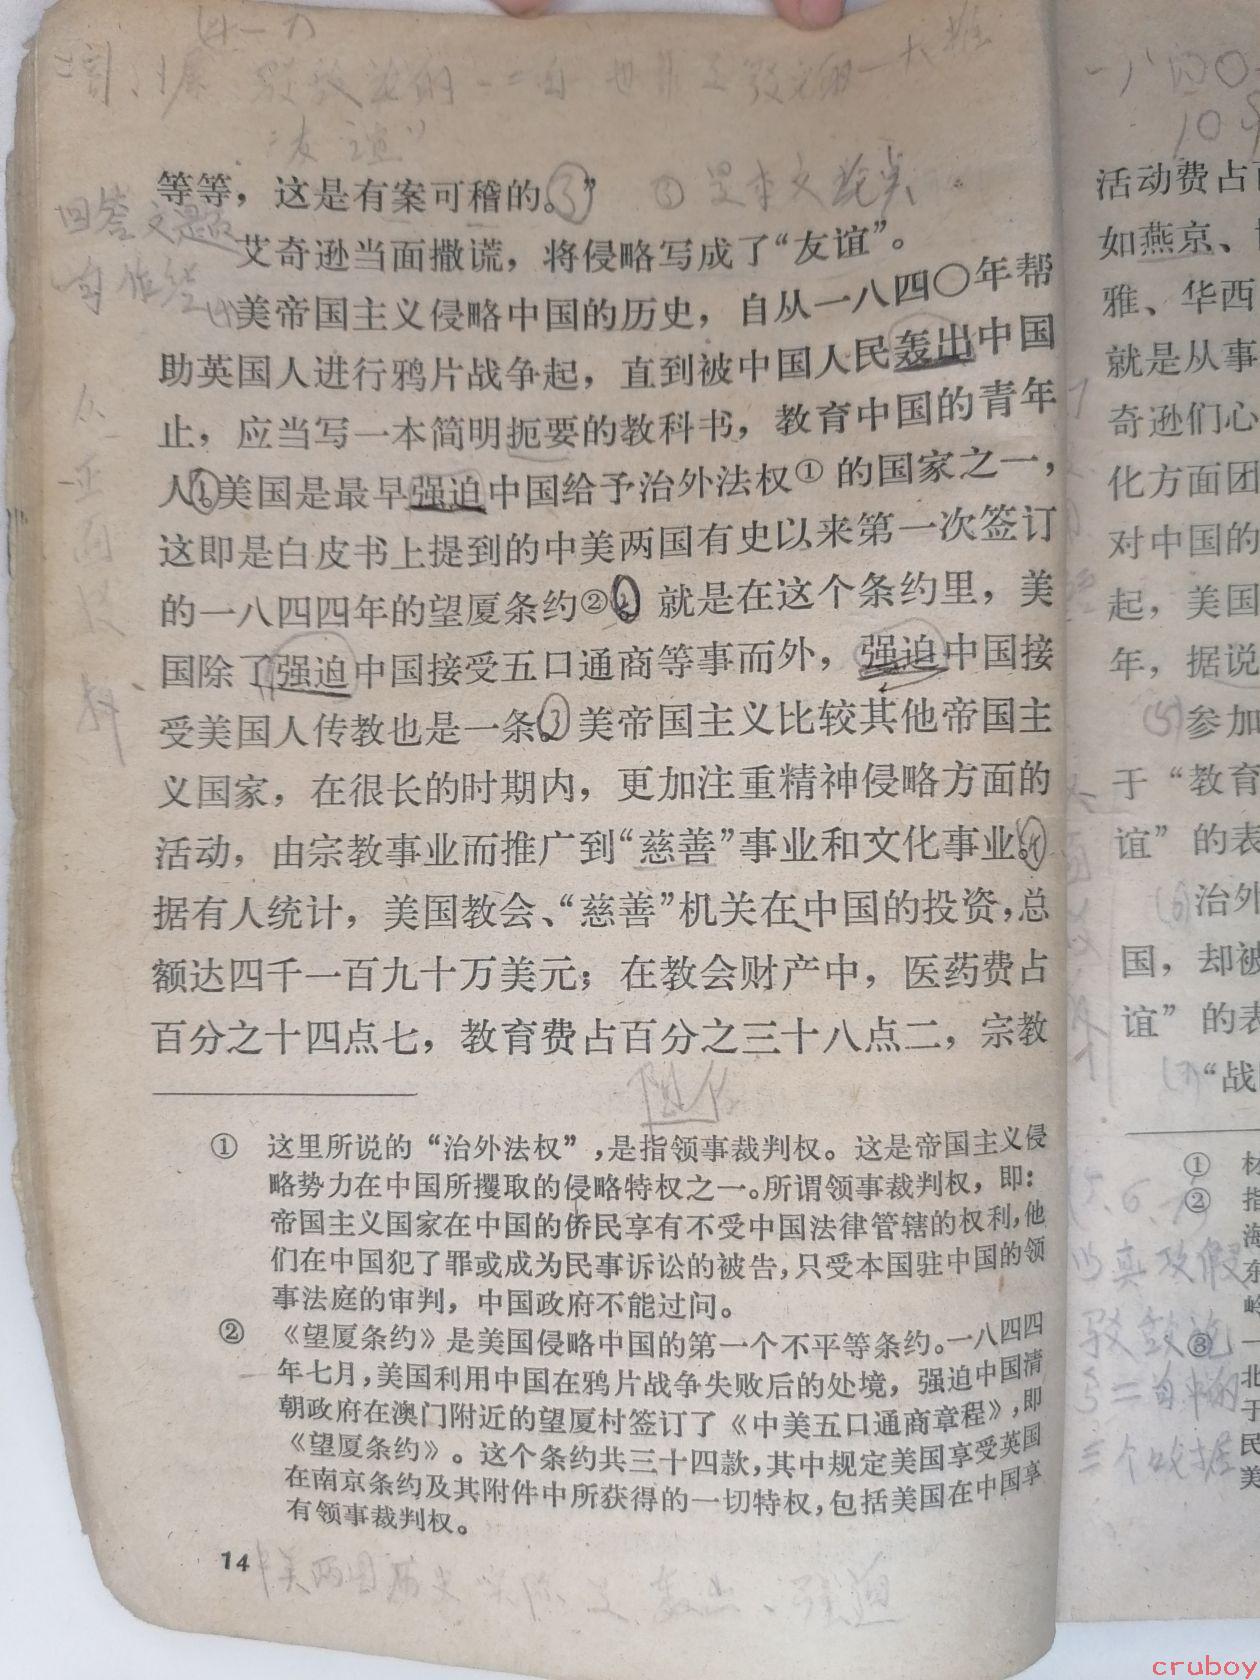 等等，这是有案可稽的。”
③ 是本文论点
艾奇逊当面撒谎，将侵略写成了“友谊”。
美帝国主义侵略中国的历史，自从一八四〇年帮
助英国人进行鸦片战争起，直到被中国人民轰出中国
止，应当写一本简明扼要的教科书，教育中国的青年
人。美国是最早强迫中国给予治外法权①的国家之一，
这即是白皮书上提到的中美两国有史以来第一次签订
的一八四四年的望厦条约②。就是在这个条约里，美
国除了强迫中国接受五口通商等事而外，强迫中国接
受美国人传教也是一条。美帝国主义比较其他帝国主
义国家，在很长的时期内，更加注重精神侵略方面的
活动，由宗教事业而推广到“慈善”事业和文化事业。
据有人统计，美国教会、“慈善”机关在中国的投资，总
额达四千一百九十万美元；在教会财产中，医药费占
百分之十四点七，教育费占百分之三十八点二，宗教
① 这里所说的“治外法权”，是指领事裁判权。这是帝国主义侵
略势力在中国所攫取的侵略特权之一。所谓领事裁判权，即：
帝国主义国家在中国的侨民享有不受中国法律管辖的权利，他
们在中国犯了罪或成为民事诉讼的被告，只受本国驻中国的领
事法庭的审判，中国政府不能过问。
② 《望厦条约》是美国侵略中国的第一个不平等条约。一八四四
年七月，美国利用中国在鸦片战争失败后的处境，强迫中国清
朝政府在澳门附近的望厦村签订了《中美五口通商章程》，即
《望厦条约》。这个条约共三十四款，其中规定美国享受英国
在南京条约及其附件中所获得的一切特权，包括美国在中国享
有领事裁判权。
14
中美两国历史实际是轰出、强迫
一八四〇
活动费占
如燕京、
雅、华西
就是从事
奇逊们心
化方面团
对中国的
起，美国
年，据说
(5)参加
于“教育
谊”的表
(6)治外
国，却被
谊”的表
(7)“战
①
② 指
海
东
③ 一
北
于
民
美
cruboy